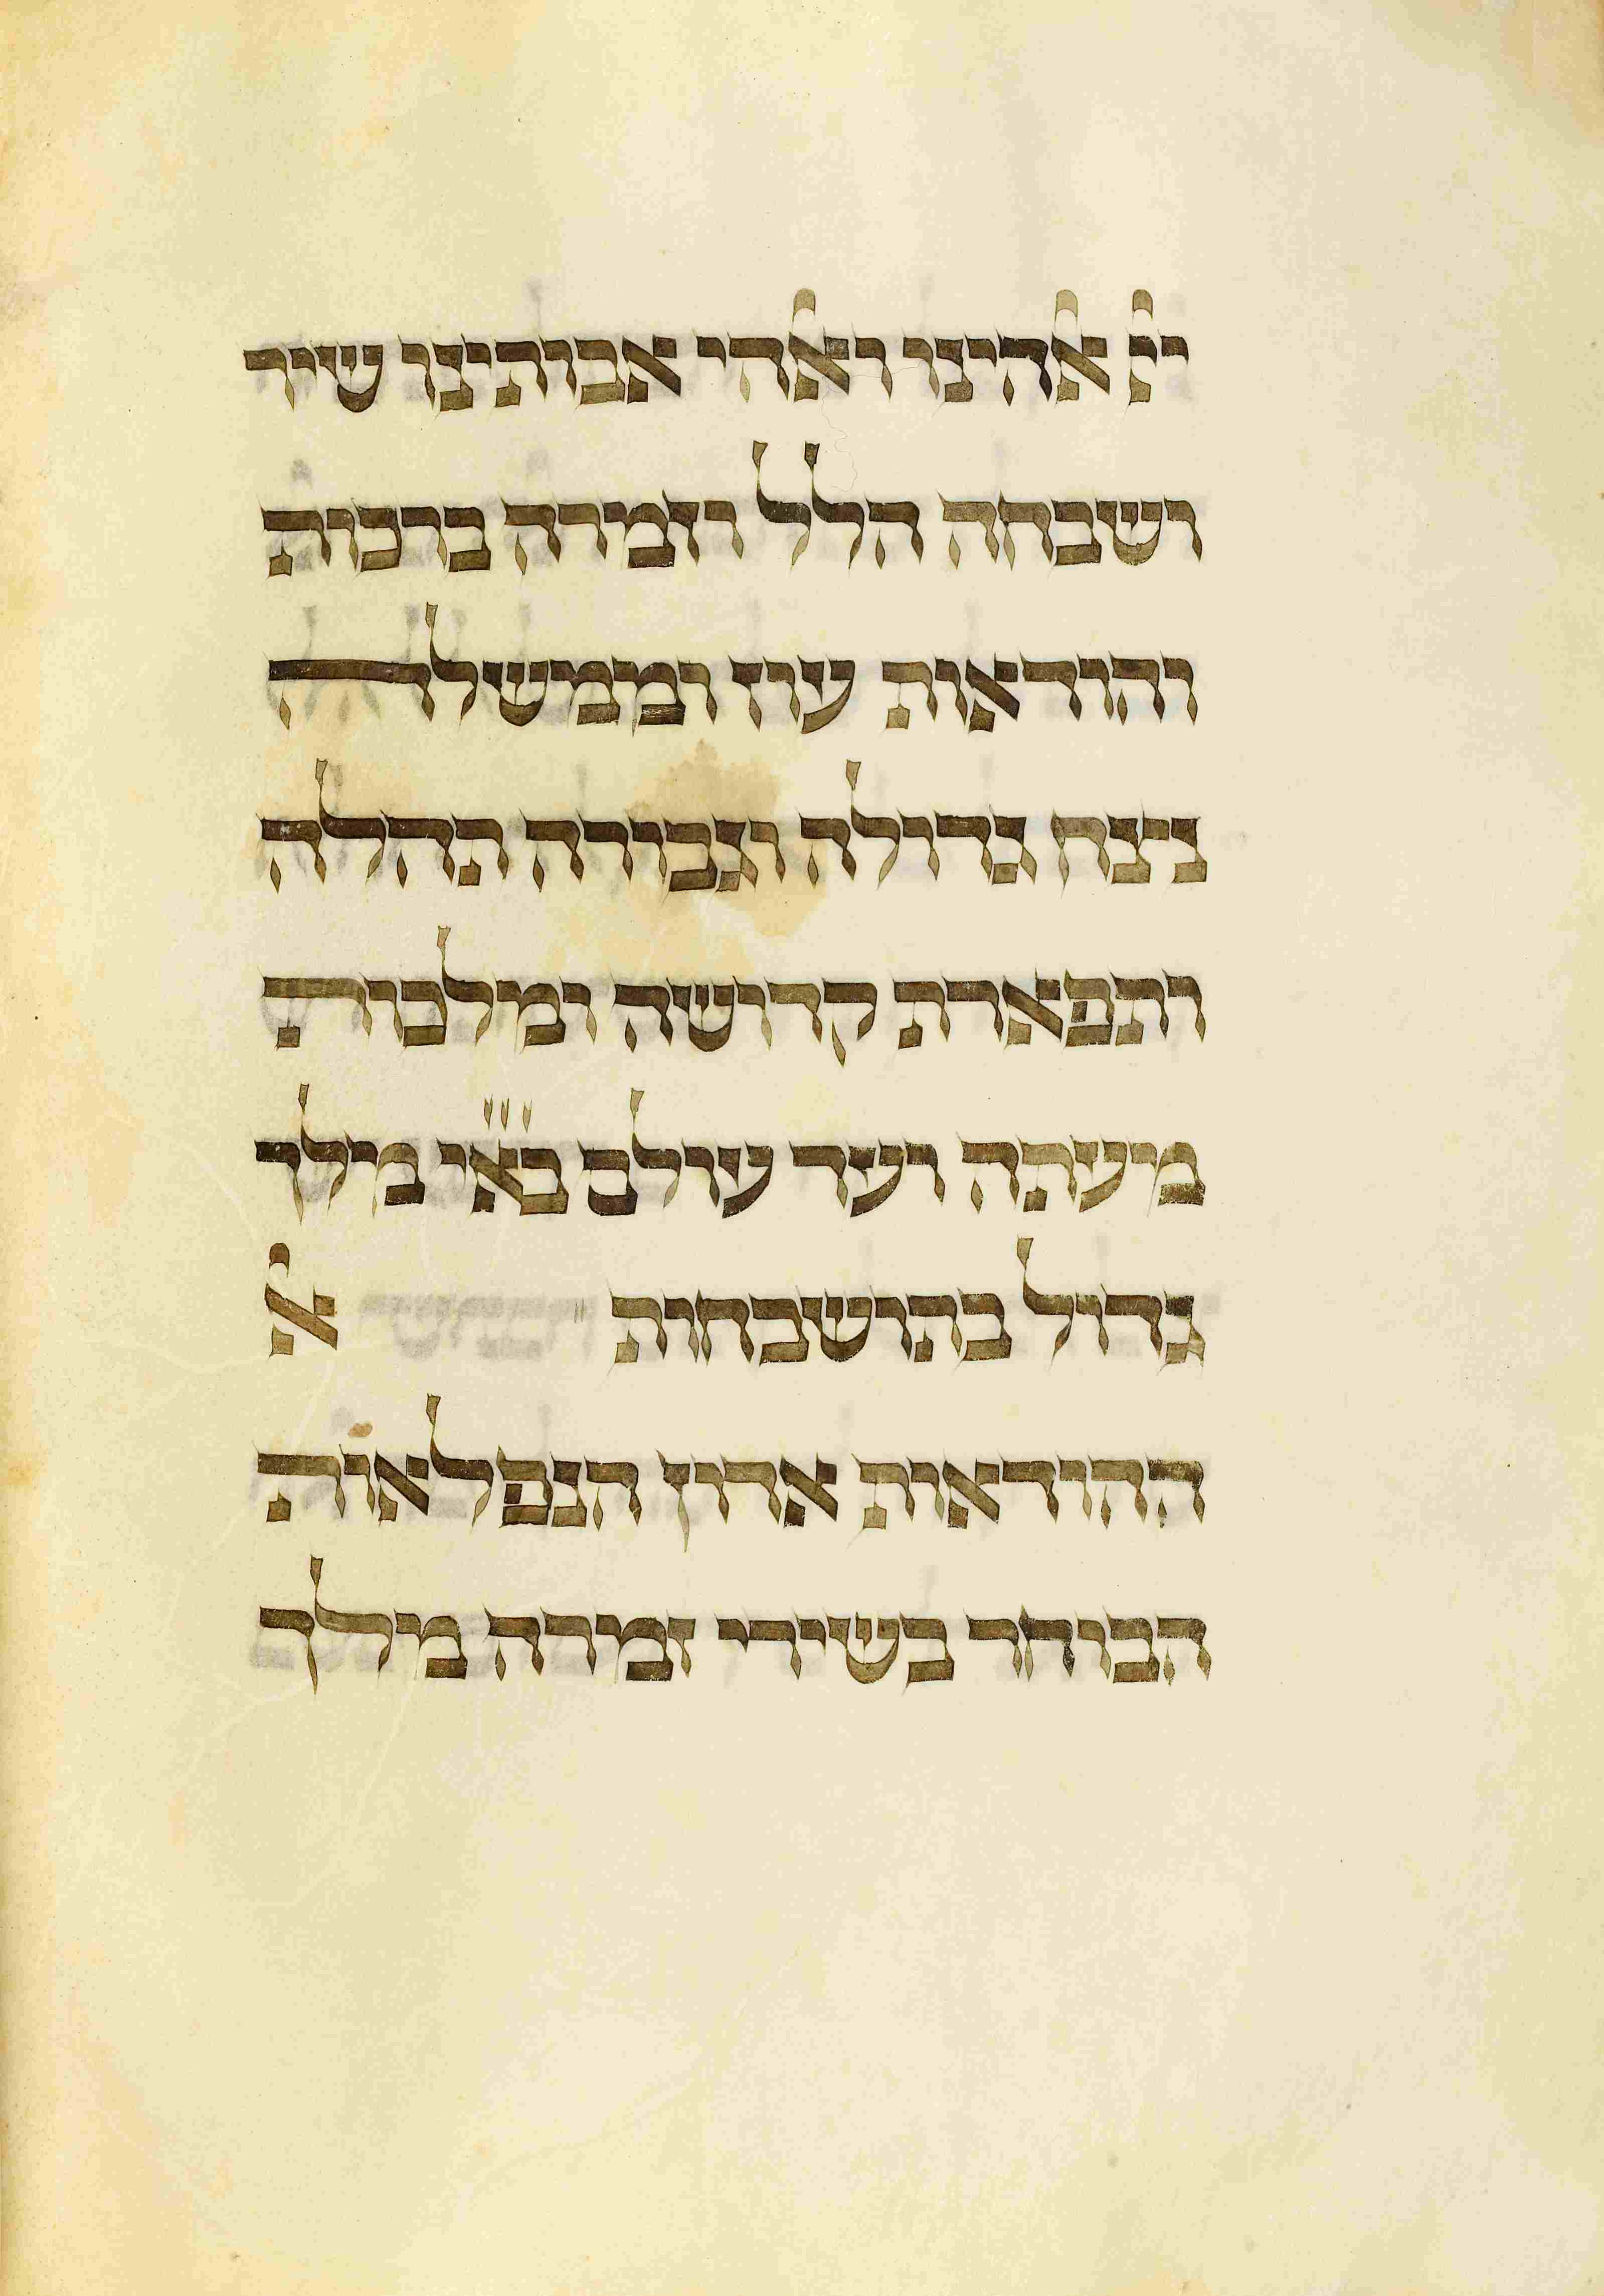 ייי אלהינו ואלהי אבותינו שיר
ושבחה הלל וזמרה ברכות
והודאות עוז וממשלה
ניצח גדולה וגבורה תהלה
ותפארת קדושה ומלכות
מיעתה ועד עולם בא״י מילך
גדול בתושבחות אל
ההודאות אדון הנפלאות
הבוחר בשירי זמרה מלך